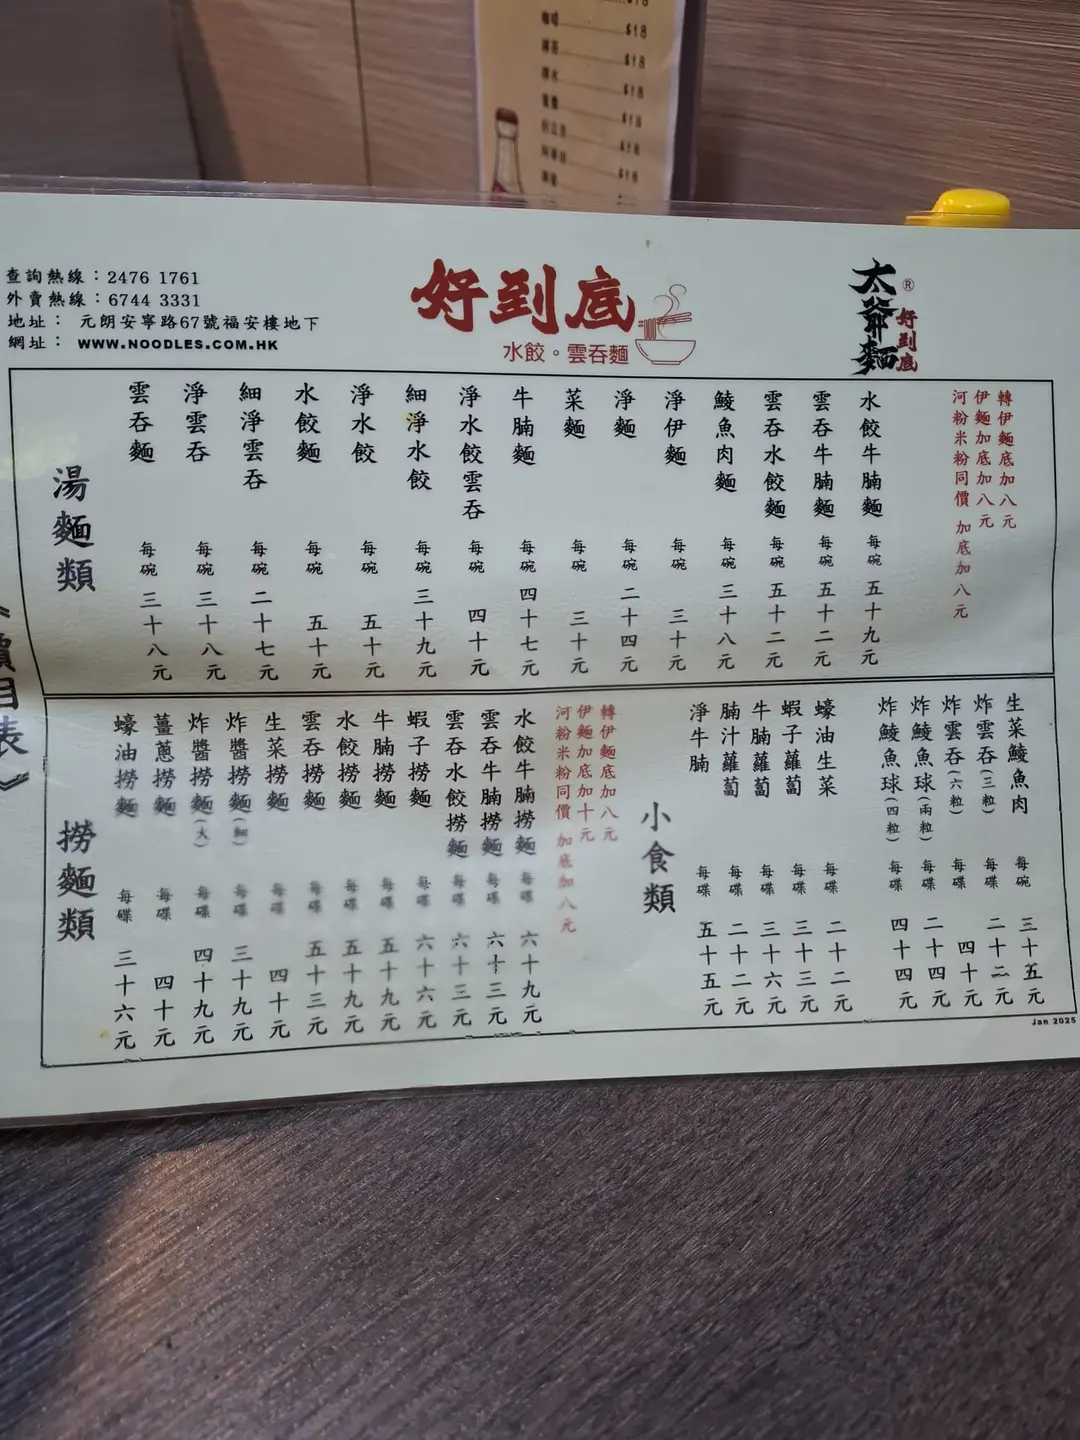 咖啡 $18
$18
$18
$18
$18
$18
$18
查詢熱線：2476 1761
外賣熱線：6744 3331
地址： 元朗安寧路67號福安樓地下
網址： WWW.NOODLES.COM.HK
好到底
水餃。雲吞麵
太爺麵
®
好到底
價目表》
湯麵類
雲吞麵 每碗 三十八元
淨雲吞 每碗 三十八元
細淨雲吞 每碗 二十七元
水餃麵 每碗 五十元
淨水餃 每碗 五十元
細淨水餃 每碗 三十九元
淨水餃雲吞 每碗 四十元
牛腩麵 每碗 四十七元
菜麵 每碗 三十元
淨麵 每碗 二十四元
淨伊麵 每碗 三十元
鯪魚肉麵 每碗 三十八元
雲吞水餃麵 每碗 五十二元
雲吞牛腩麵 每碗 五十二元
水餃牛腩麵 每碗 五十九元
轉伊麵底加八元
伊麵加底加八元
河粉米粉同價 加底加八元
撈麵類
蠔油撈麵 每碟 三十六元
薑蔥撈麵 每碟 四十元
炸醬撈麵(大) 每碟 四十九元
炸醬撈麵(細) 每碟 三十九元
生菜撈麵 每碟 四十元
雲吞撈麵 每碟 五十三元
水餃撈麵 每碟 五十九元
牛腩撈麵 每碟 五十九元
蝦子撈麵 每碟 六十六元
雲吞水餃撈麵 每碟 六十三元
雲吞牛腩撈麵 每碟 六十三元
水餃牛腩撈麵 每碟 六十九元
轉伊麵底加八元
伊麵加底加十元
河粉米粉同價 加底加八元
小食類
淨牛腩 每碟 五十五元
腩汁蘿蔔 每碟 二十二元
牛腩蘿蔔 每碟 三十六元
蝦子蘿蔔 每碟 三十三元
蠔油生菜 每碟 二十二元
炸鯪魚球(四粒) 每碟 四十四元
炸鯪魚球(兩粒) 每碟 二十四元
炸雲吞(六粒) 每碟 四十元
炸雲吞(三粒) 每碟 二十二元
生菜鯪魚肉 每碗 三十五元
Jan 2025